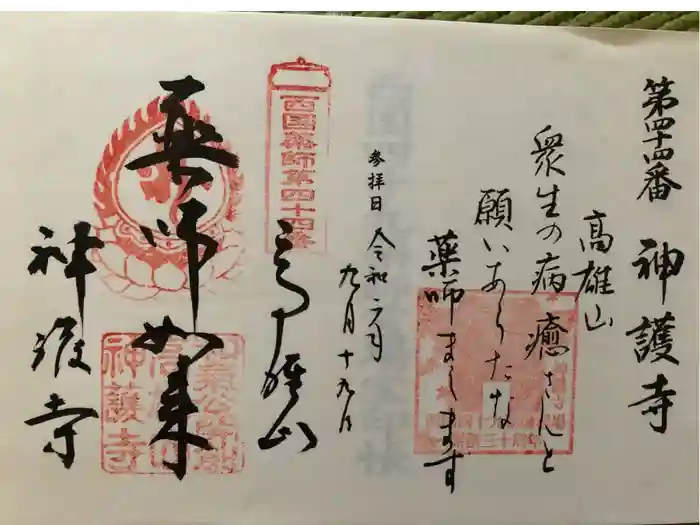 第四十四番 神護寺
高雄山
衆生の病 癒さんと
願いあらたな
薬師まします
参拝日 令和六年
九月十九日
西国薬師第四十四番
高雄山
薬師如来
神護寺
神護寺